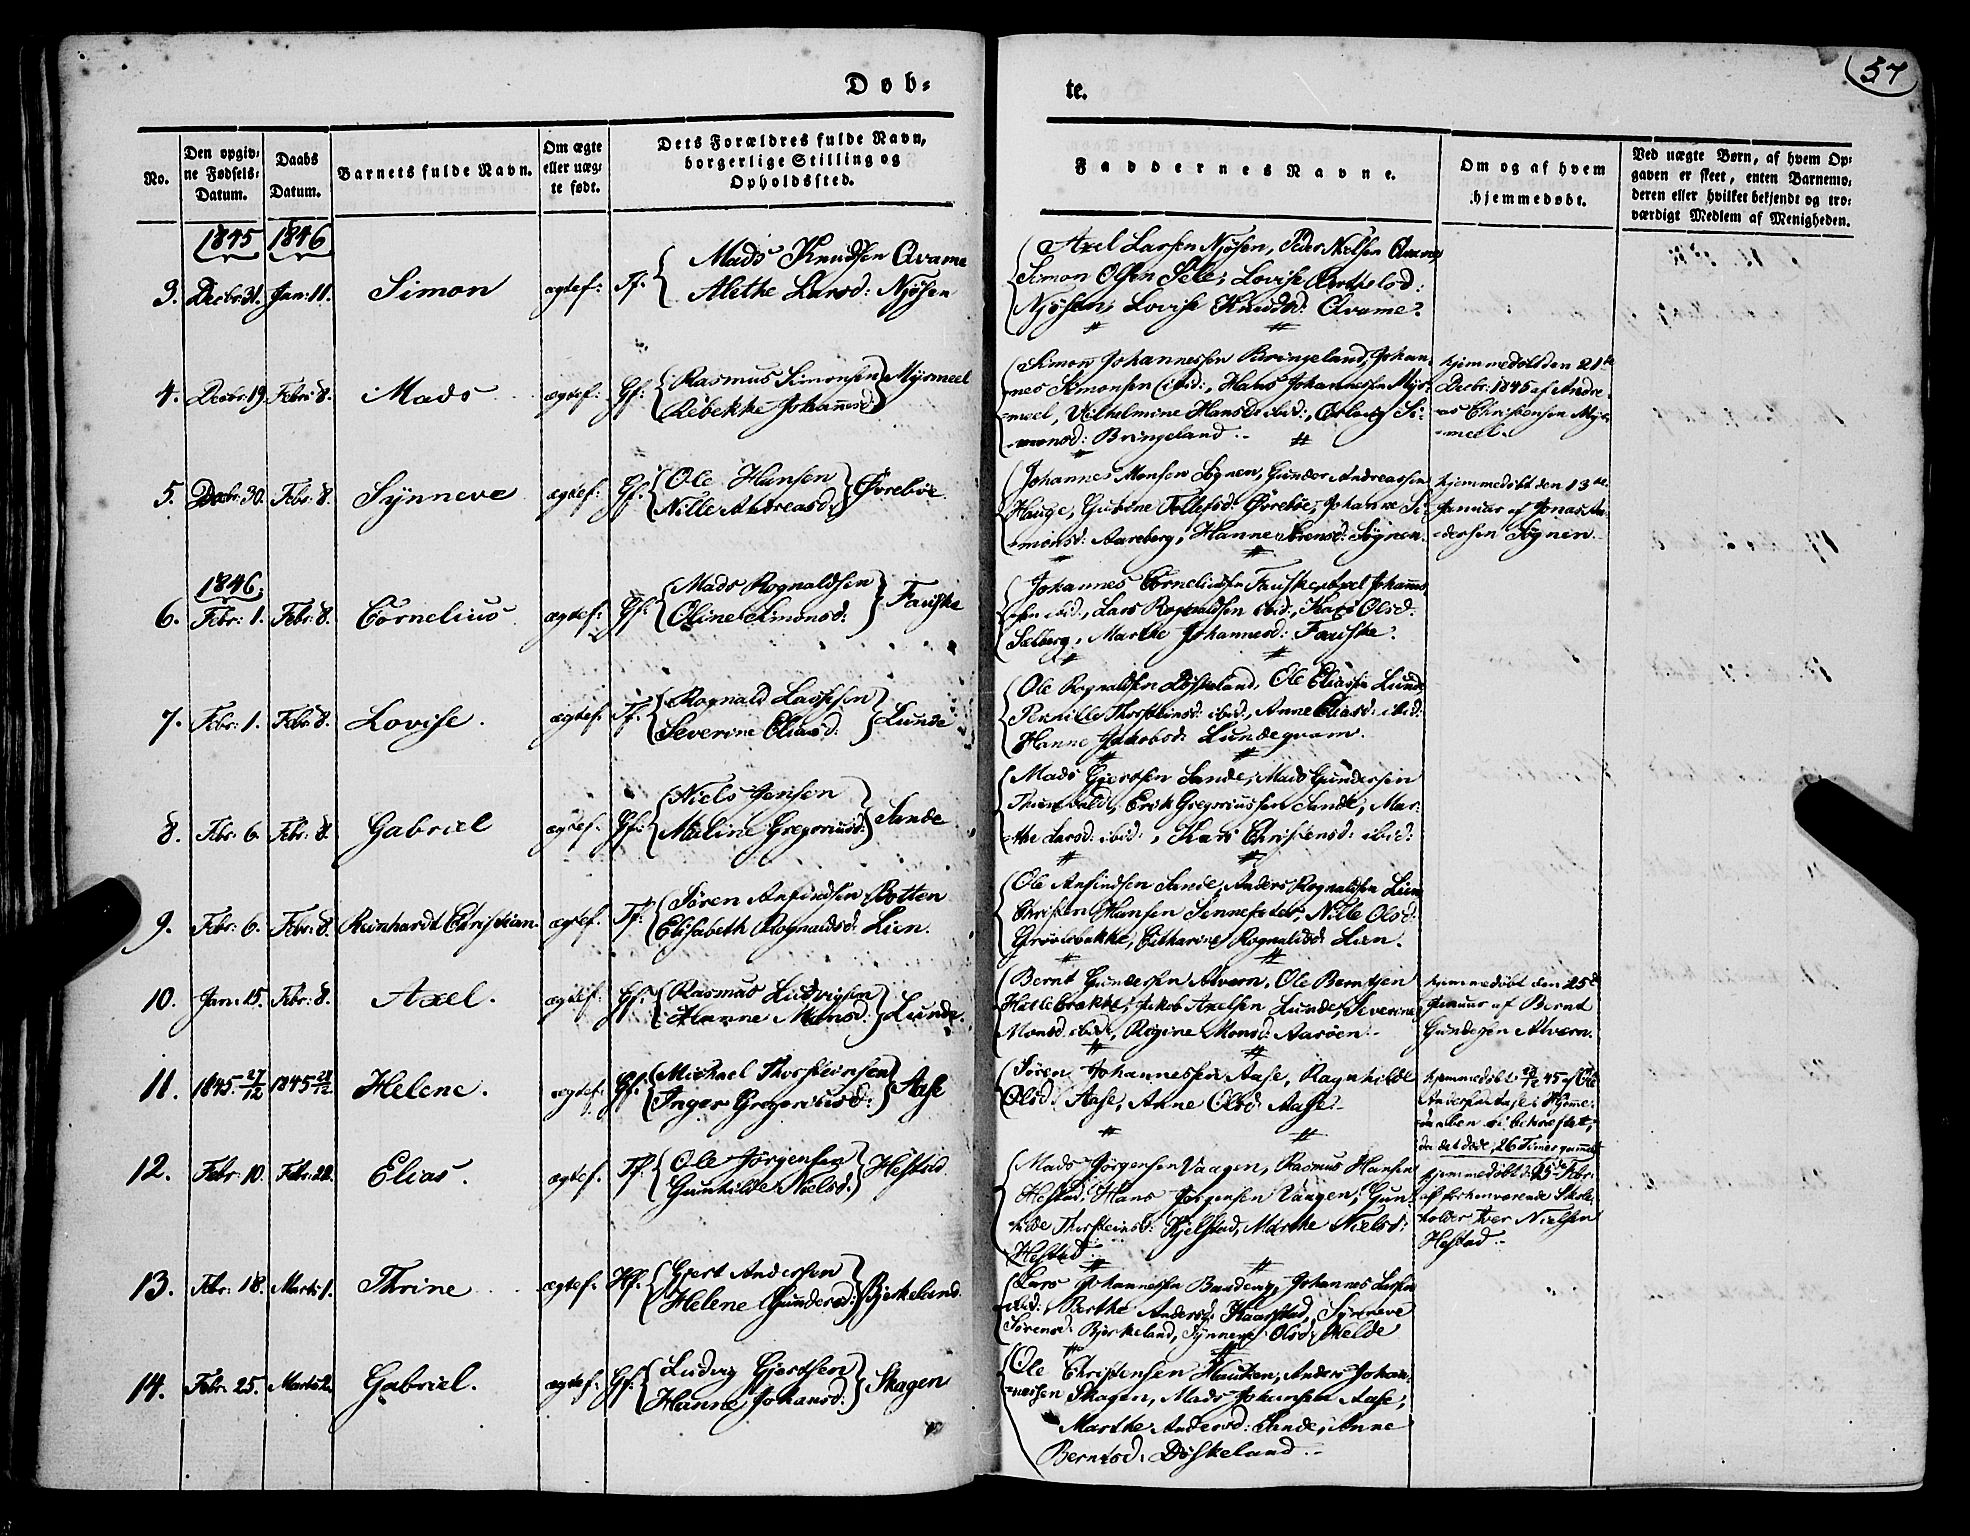 Døb-
te.
57
No.
Den opgiv-
ne Fødsels-
Datum.
Daabs
Datum.
Barnets fulde Navn.
Om ægte
eller uæg-
te født.
Dets Forældres fulde Navn,
borgerlige Stilling og
Opholdssted.
Faddernes Navne.
Om og af hvem
hjemmedøbt.
Ved uægte Børn, af hvem Op-
gaven er skeet, enten Barnemo-
deren eller hvilket bekjendt og tro-
værdigt Medlem af Menigheden.
1845 1846
3. Decbr: 31. Jan: 11. Simon ægtef: Tf: Mads Knudsen Qvame
Alethe Larsd: Njøsen
Axel Larsen Njøsen, Peder Nielsen Qvame
Simon Olsen Sele, Lovise
Njøsen, Lovise Knudsd: Qvame.
4. Decbr: 19. Febr: 8. Mads ægtef: Gf: Rasmus Simonsen
Rebekke Johannesd: Myrmeel
Simon Johannessen Bringeland, Johan-
nes Simonsen ibid:, Hans Johannesen Myr-
meel, Vilhelmine Hansd: ibid:, Si-
monsd: Bringeland.
hjemmedøbt den 21de
Decbr: 1845 af Andre-
as Christensen Myr-
meel.
5. Decbr: 30. Febr: 8. Synneve ægtef: Gf: Ole Hansen
Nille Andreasd: Øvrebøe
Johannes Monsen Sognen, Gunder Andreassen
Hauge, Gurine Tollefsd: Øvrebøe, Johanne Si-
monsd: Aareberg, Hanne Sørensd: Sognen.
hjemmedøbt den 13de
Januar af Jonas An-
dersen Sognen.
1846
6. Febr: 1. Febr: 8. Cornelius ægtef: Gf: Mads Rognaldsen
Oline Simonsd: Fauske
Johannes Corneliussen Fauske, Axel Johannes-
sen ibid:, Lars Rognaldsen ibid:, Kari Olsd:
Solberg, Marthe Johannesd: Fauske.
7. Febr: 1. Febr: 8. Lovise. ægtef: Tf: Rognald Lassesen
Severine Eliasd: Lunde
Ole Rognaldsen Døskeland, Ole Eliassen Lunde
Pernille Thorsteinsd: ibid:, Anne Eliasd: ibid:
Hanne Jakobsd: Lundeqvam.
8. Febr: 6. Febr: 8. Gabriel ægtef: Gf: Niels Jensen
Maline Gregoriusd: Sande
Mads Gjertsen Sande, Mads Gundersen
Erik Gregoriussen Sande, Mar-
the Larsd: ibid:, Kari Christensd: ibid:
9. Febr: 6. Febr: 8. Reinhardt Christian. ægtef: Tf: Søren Anfindsen Botten
Elisabeth Rognaldsd: Lien.
Ole Anfindsen Sande, Anders Rognaldsen Lien
Christen Hansen Nille Olsd:
Catharine Rognaldsd: Lien.
10. Jan: 15. Febr: 8. Axel. ægtef: Gf: Rasmus Ludvigsen
Hanne Monsd: Lunde.
Bernt Gundersen Alvern, Ole Berntsen
Hatlebrække, Jakob Axelsen Lunde, Severine
Monsd: ibid:, Regine Monsd: Aarøen.
hjemmedøbt den 25de
Januar af Bernt
Gundersen Alvern.
11. 1845 27/12 1845 28/12 Helene. ægtef: Gf: Michael Thorsteinsen
Inger Gregoriusd: Aase
Søren Johannessen Aase, Ragnhilde
Olsd: Aase, Anne Olsd: Aase.
hjemmedøbt 28/12 45 af Ole
Andersen Aase. Hjemme-
daaben ei bekræftet,
da det døde, 26 Timer gammelt
12. Febr: 10. Febr: 22. Elias. ægtef: Tf: Ole Jørgensen
Gunhilde Nielsd: Hestad.
Mads Jørgensen Vaagen, Rasmus Hansen
Hestad, Hans Jørgensen Vaagen, Gun-
hilde Thorsteinsd: Kjelstad, Marthe Nielsd:
Hestad.
hjemmedøbt d: 15de Febr:
af forhenværende Skole-
holder Iver Nielsen
Hestad.
13. Febr: 18. Marts 1. Thrine ægtef: Hf: Gjert Andersen
Helene Gundersd: Bjerkeland.
Lars Johannessen Johannes Larsen
ibid:, Berthe Andersd: Kaarstad, Synneve
Sørensd: Bjerkeland, Synneve Olsd: Helde
14. Febr: 25. Marts 2. Gabriel. ægtef: Gf: Ludvig Gjertsen
Hanne Johansd: Skagen
Ole Christensen Anders Johan-
nessen Skagen, Mads Johansen Aase,
Marthe Andersd: Sande, Anne
Berntsd: Døskeland.